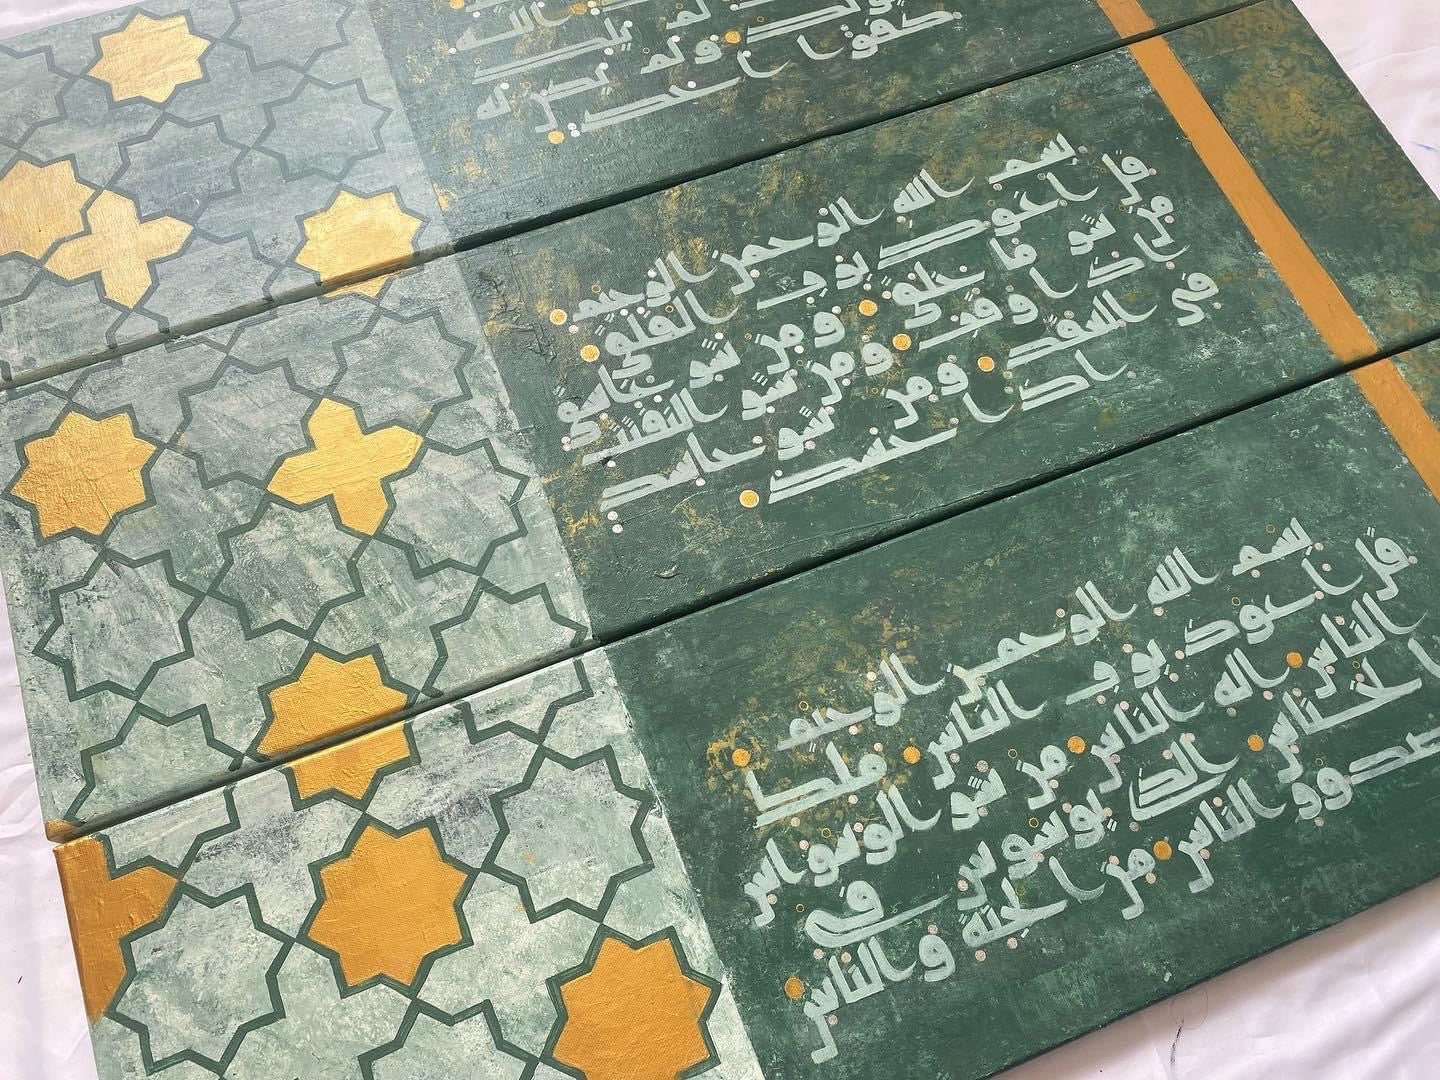 ولم يكن له
كفوا احد
بسم الله الرحمن الرحيم
قل اعوذ برب الفلق
من شر ما خلق ومن شر غاسق
اذا وقب ومن شر النفثت
في العقد ومن شر حاسد
اذا حسد
بسم الله الرحمن الرحيم
قل اعوذ برب الناس ملك
الناس اله الناس من شر الوسواس
الخناس الذي يوسوس في
صدور الناس من الجنة والناس